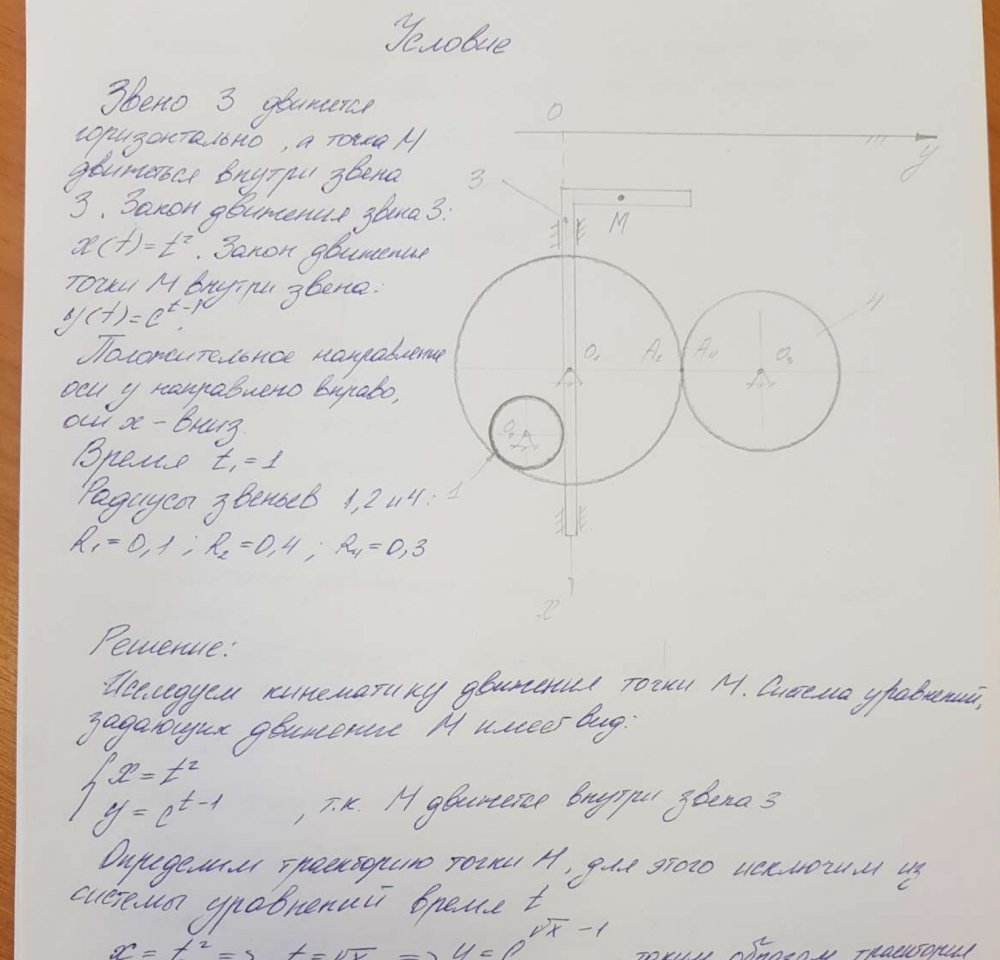 Условие
Звено 3 движется
горизонтально, а точка М
двигаться внутри звена
3. Закон движения звена 3:
x(t)=t². Закон движения
точки М внутри звена:
y(t)=e^{t-1}.
Положительное направление
оси y направлено вправо,
оси x - вниз.
Время t₁=1
Радиусы звеньев 1,2 и 4:
R₁=0,1; R₂=0,4; R₄=0,3
O
y
3
M
4
O₁
A₂
A₄
O₃
O₂
1
x
Решение:
Исследуем кинематику движения точки М. Система уравнений,
задающих движение М имеет вид:
{ x = t²
y = e^{t-1} , т.к. М движется внутри звена 3
Определим траекторию точки М, для этого исключим из
системы уравнений время t
x = t² => t = √x => y = e^{√x - 1} таким образом траектория